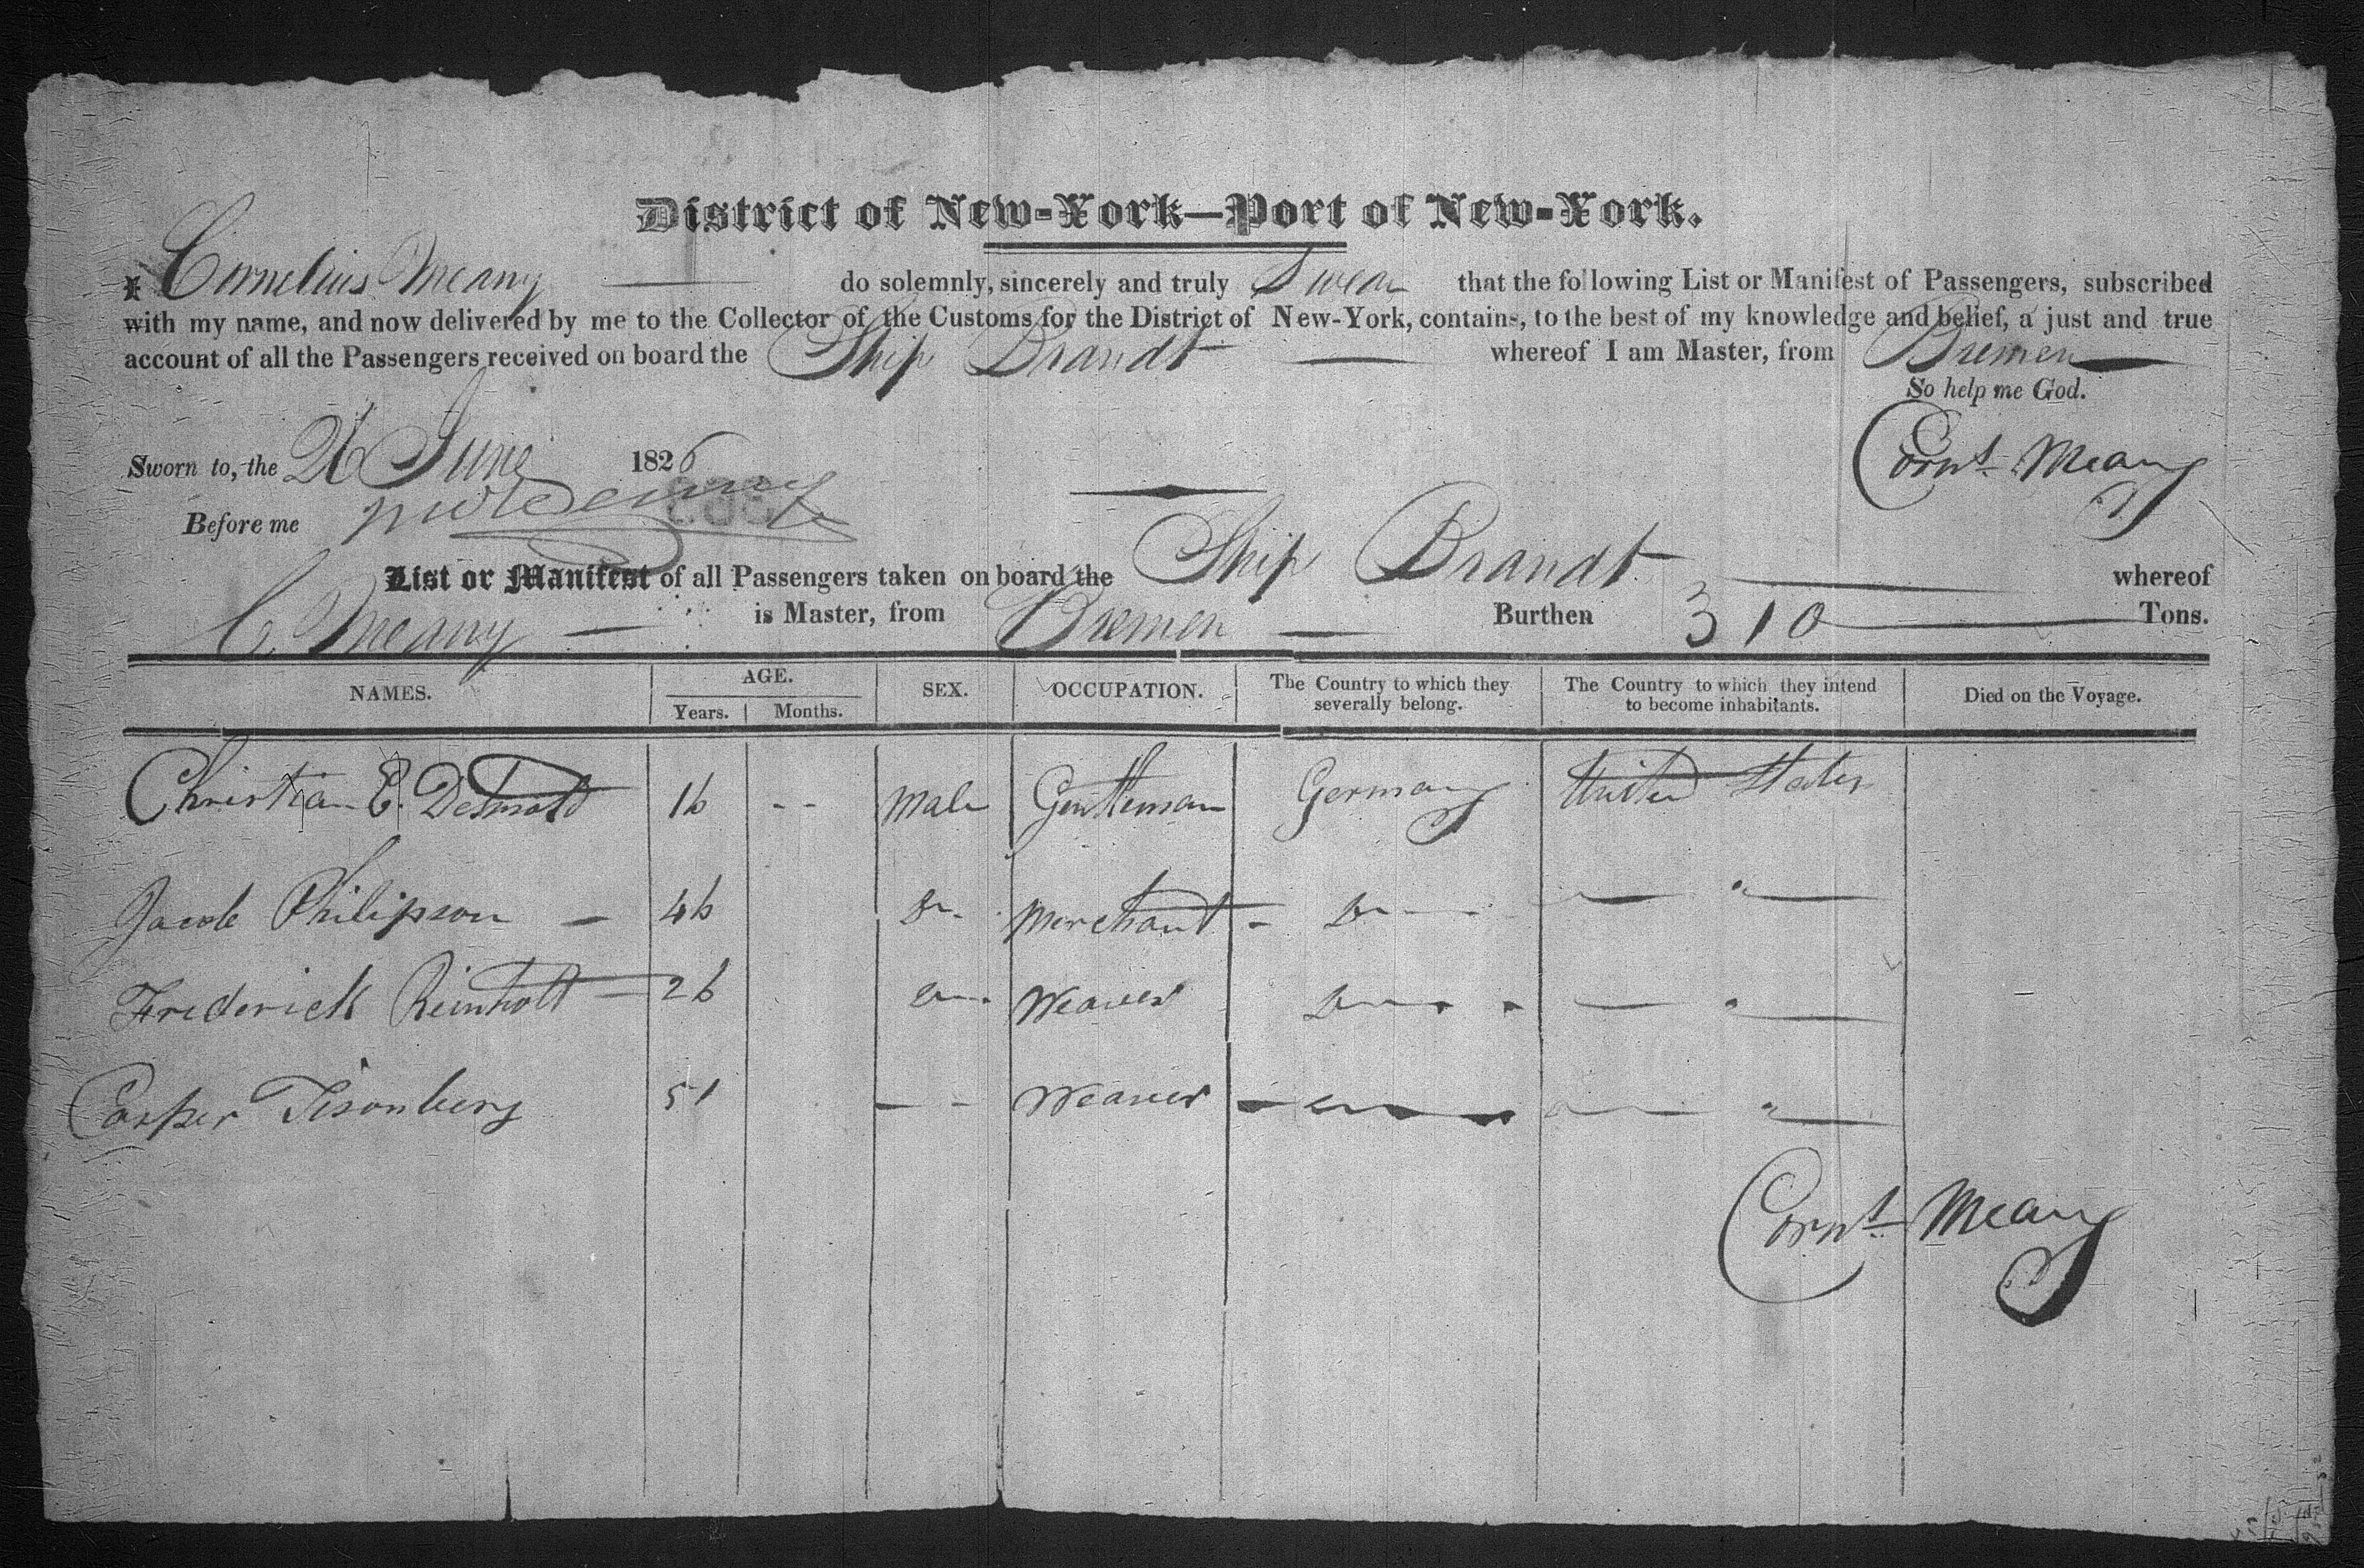 District of New-York—Port of New-York.
I Cornelius Meany do solemnly, sincerely and truly Swear that the following List or Manifest of Passengers, subscribed
with my name, and now delivered by me to the Collector of the Customs for the District of New-York, contains, to the best of my knowledge and belief, a just and true
account of all the Passengers received on board the Ship Brandt whereof I am Master, from Bremen
So help me God.
Sworn to, the 26 June 1826
Corns Meany
Before me
List or Manifest of all Passengers taken on board the Ship Brandt whereof
C. Meany is Master, from Bremen Burthen 310 Tons.
NAMES. AGE. Years. Months. SEX. OCCUPATION. The Country to which they severally belong. The Country to which they intend to become inhabitants. Died on the Voyage.
Christian E. Detmold 16 -- Male Gentleman Germany United States
Jacob Philipson — 46 Do. Merchant - Do
Frederick Reinholt 26 Do. Weaver Do
Casper Tisonberg 51 Weaver
Corns Meany